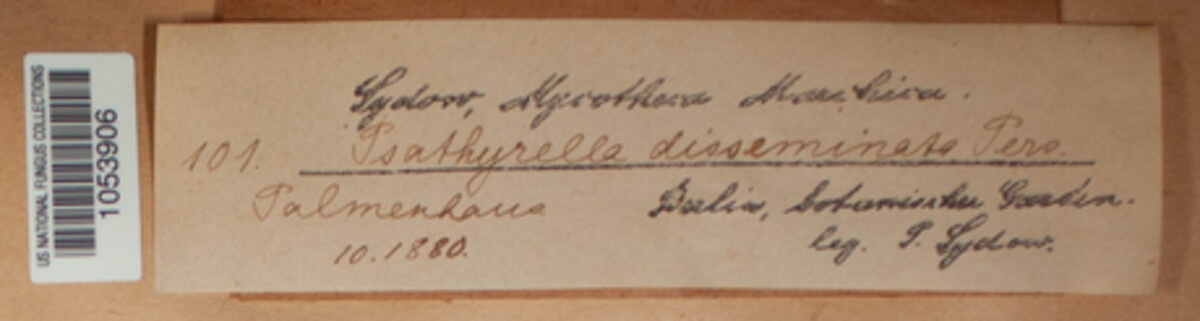 US NATIONAL FUNGUS COLLECTIONS
1053906
Sydow, Mycotheca Marchica.
101. Psathyrella disseminata Pers.
Palmenhaus Berlin, botanischer Garten.
10.1880. leg. P. Sydow.